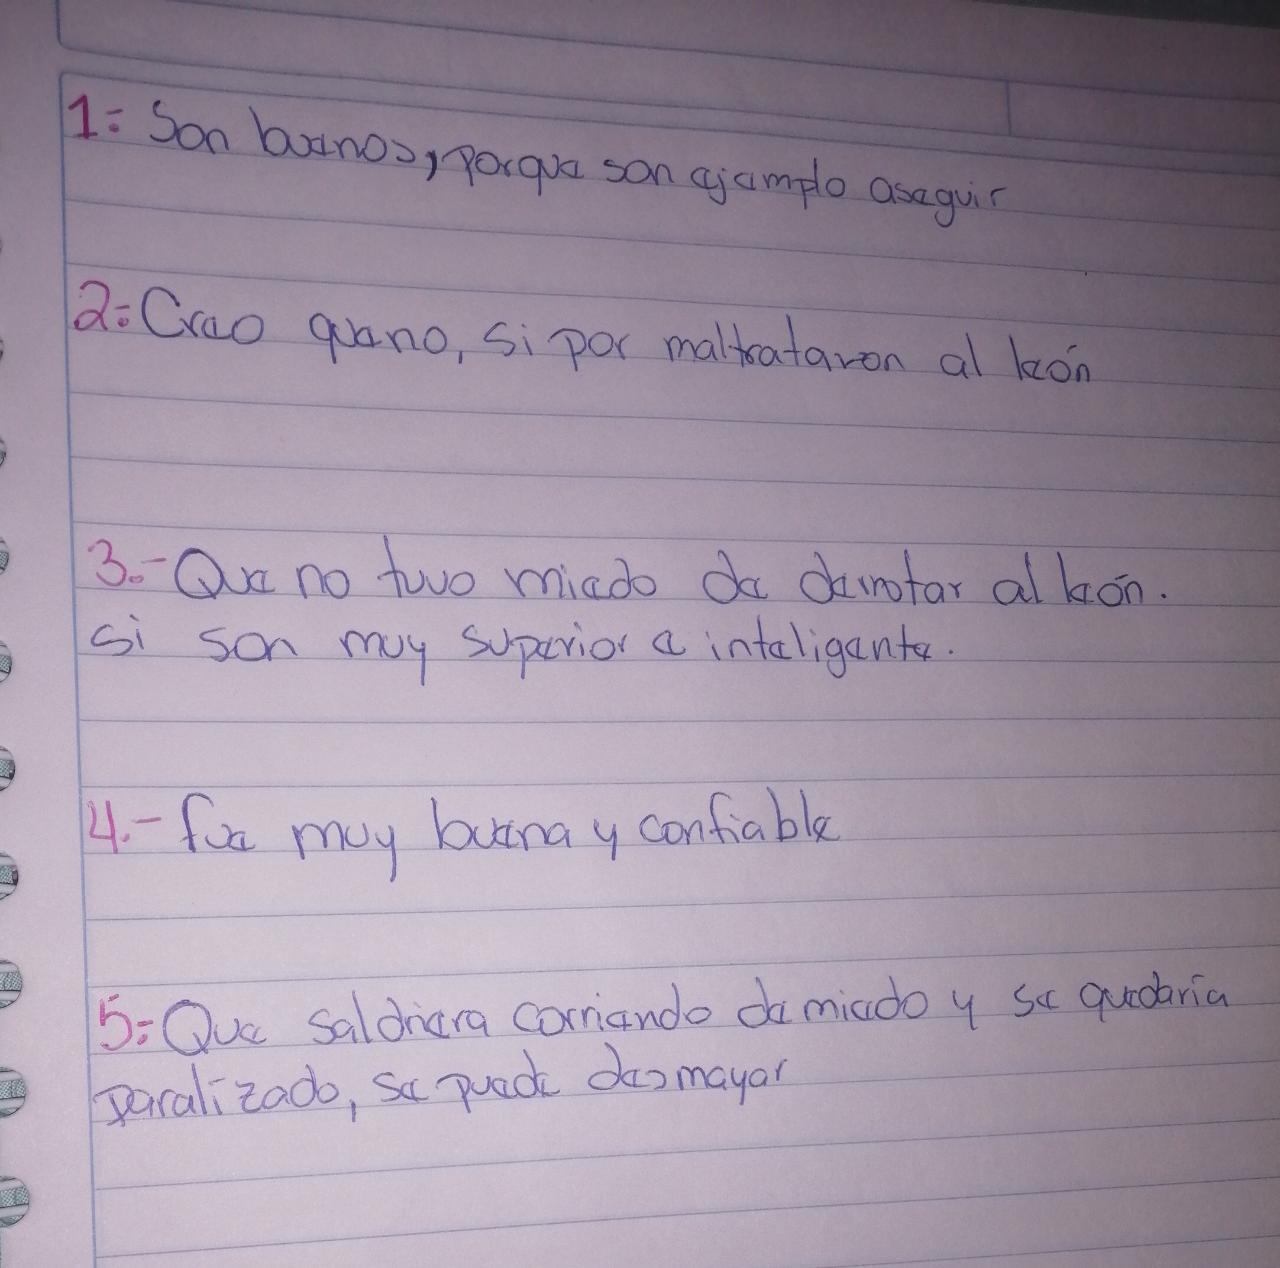 1= Son buenos, porque son ejemplo aseguir
2= Creo queno, si por maltrataron al león
3.- Que no tuvo miedo de derrotar al león.
si son muy superior e inteligente.
4.- fue muy buena y confiable
5= Que saldriera corriendo de miedo y se quedaría
paralizado, se puede desmayar